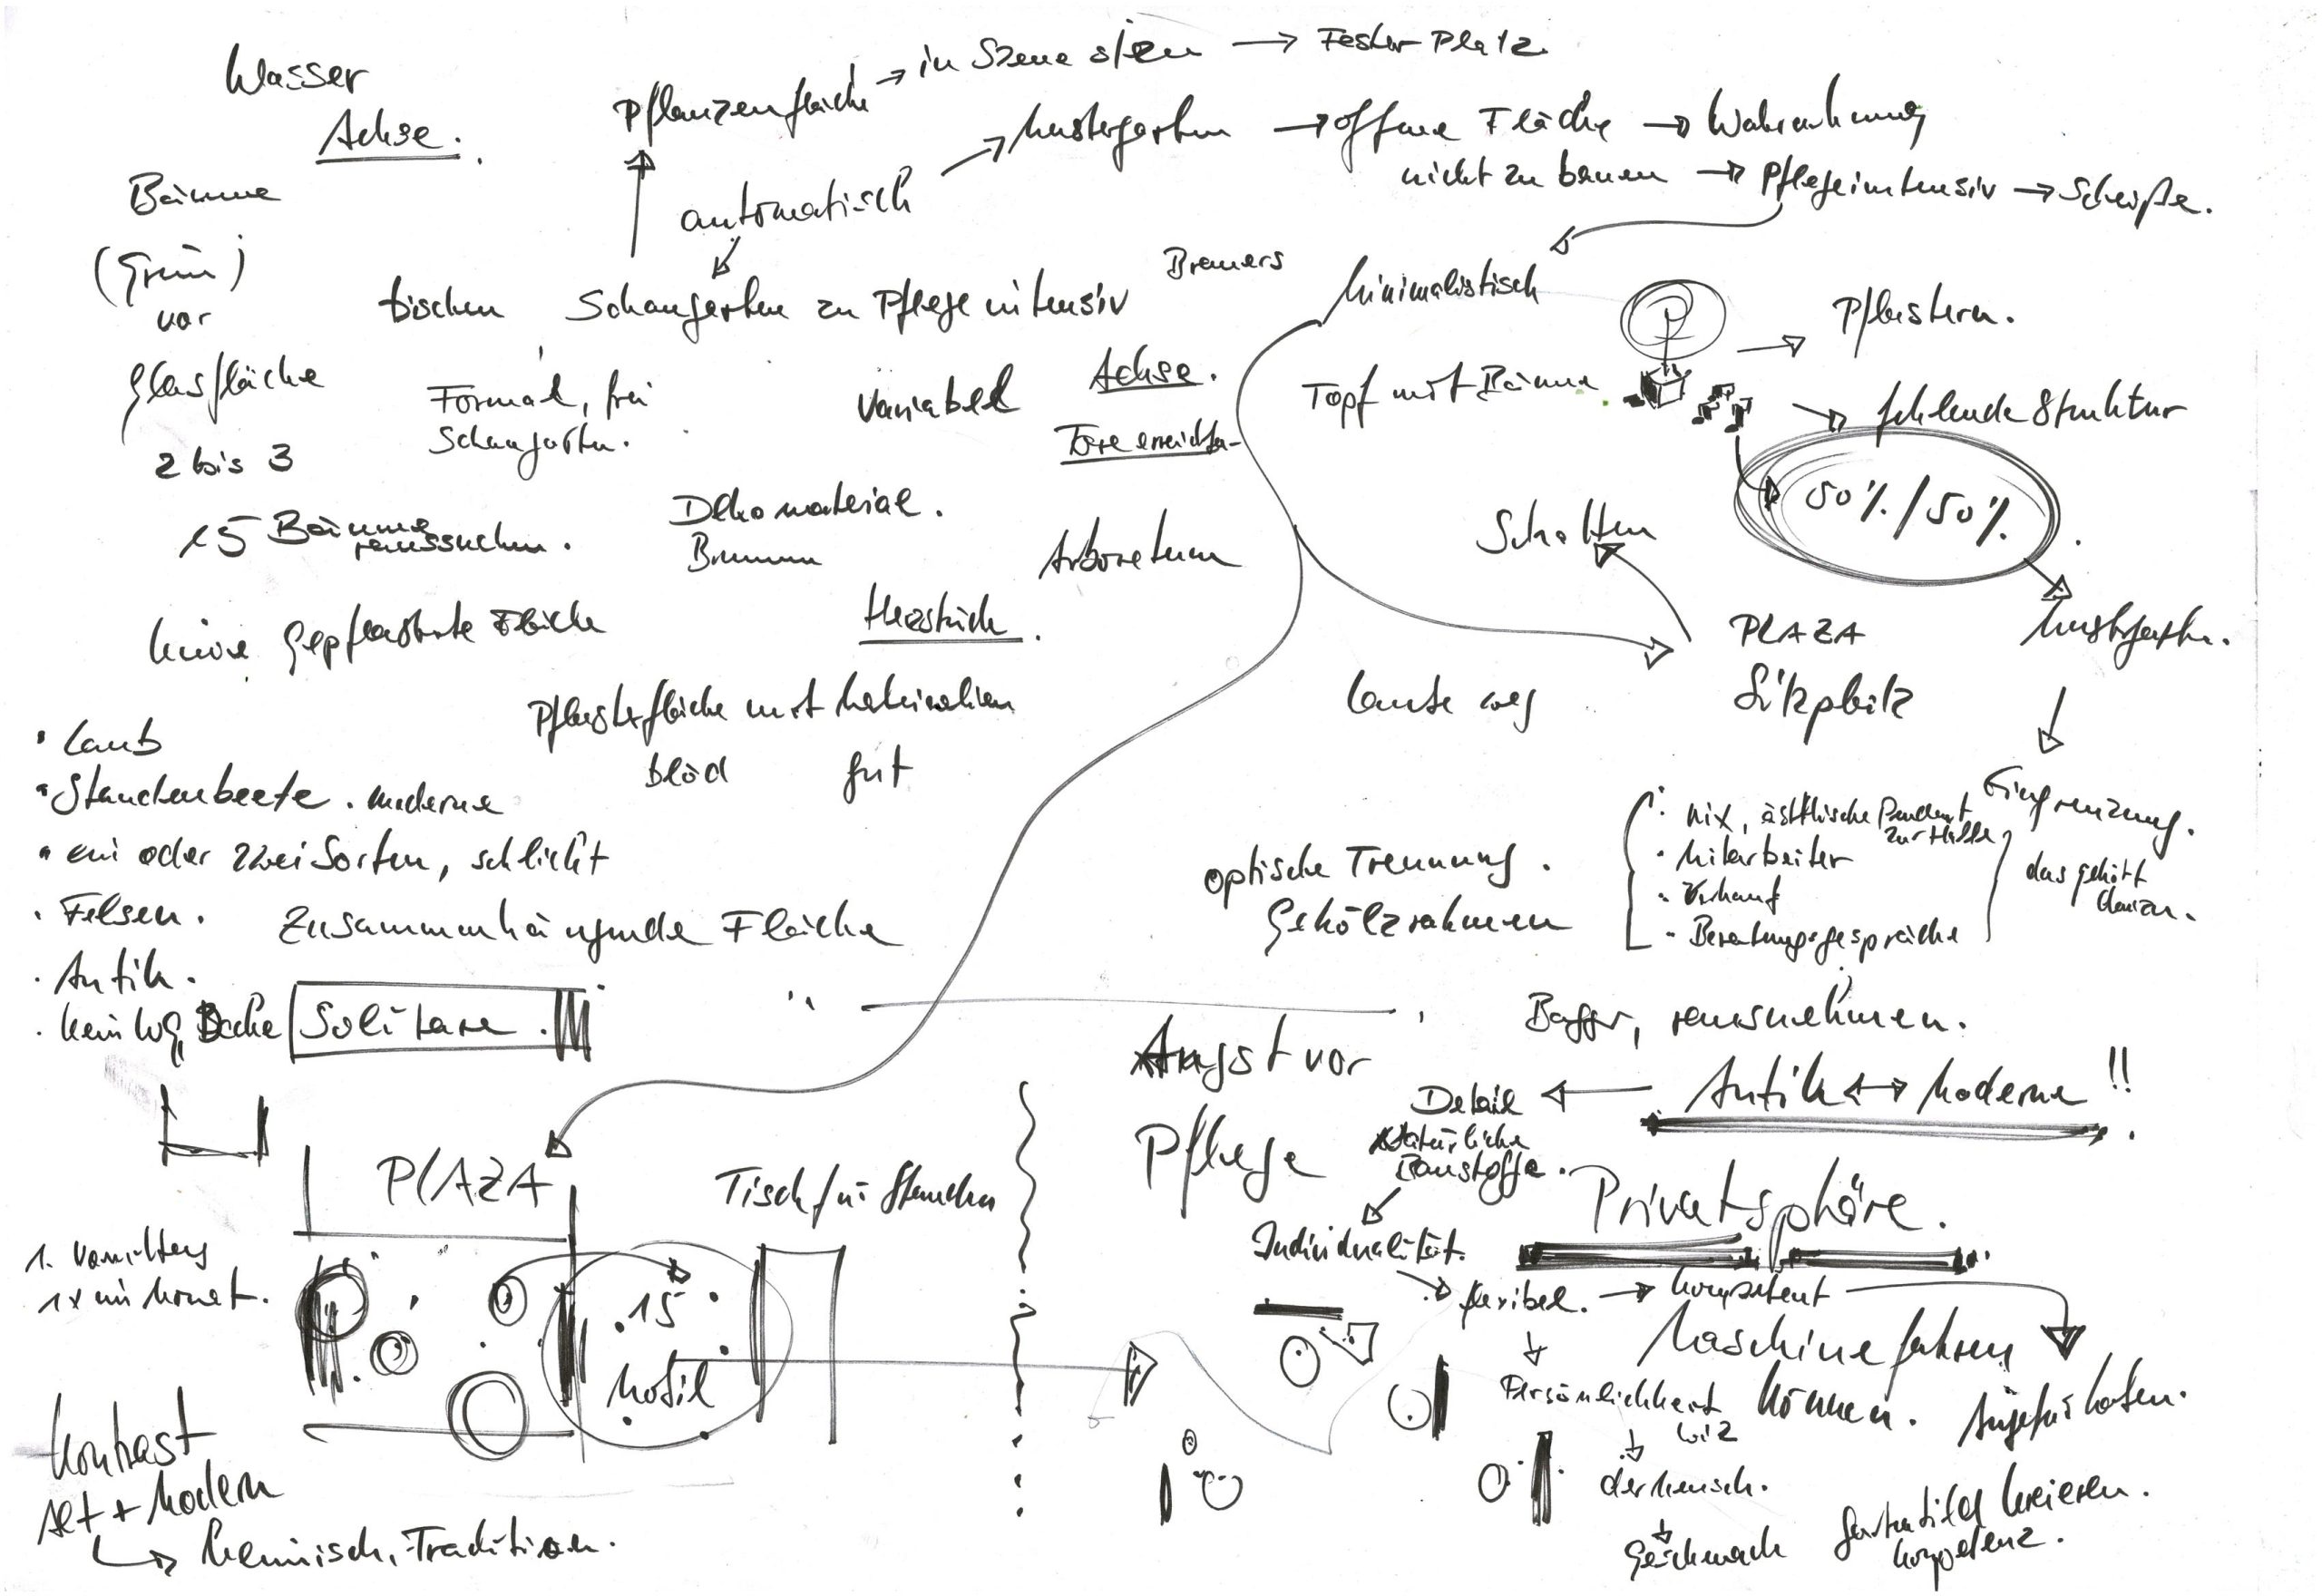 Wasser
Achse.
Bäume
(Grün)
vor
Glasfläche
2 bis 3
15 Bäume
raussuchen.
keine gepflasterte Fläche
Pflanzenfläche → in Szene → Fester Platz
automatisch
→ Mustergarten → offene Fläche → Wahrnehmung
nicht zu bauen → Pflegeintensiv → Scheiße.
tischen Schaugarten zu Pflegeintensiv
Formal, frei
Schaugarten.
Variabel
Achse.
Dekomaterial.
Brunnen
Arboretum
Herzstück.
Pflasterfläche mit Materialien
blöd gut
Minimalistisch
Topf mit Bäume
→ Pflastern.
→ fehlende Struktur
50%/50%
Schatten
PLAZA
Sitzplatz
Mustergarten.
Leute weg
Eingrenzung.
· nix, ästhtische Pendent
zur Halle
· Mitarbeiter
· Verkauf
· Beratungsgespräche
das gehört
dazu.
optische Trennung.
Gehölzrahmen
• Laub
• Staudenbeete. moderne
• ein oder zwei Sorten, schlicht
· Felsen.
· Antik.
· kein
Zusammenhängende Fläche
Solitäre.
Bagger, rausnehmen.
Angst vor
Pflege
Antik ↔ Moderne !!
Detail
Natürliche
Baustoffe.
Individualität.
Privatsphäre.
flexibel. → kompetent
Maschine fahren
können.
Persönlichkeit
wie
der Mensch.
Geschmack
Kompetenz.
PLAZA
Tisch für Stauden
1x im Monat.
15
Mobil
Kontrast
Alt + Modern
↳ Heimisch, Tradition.